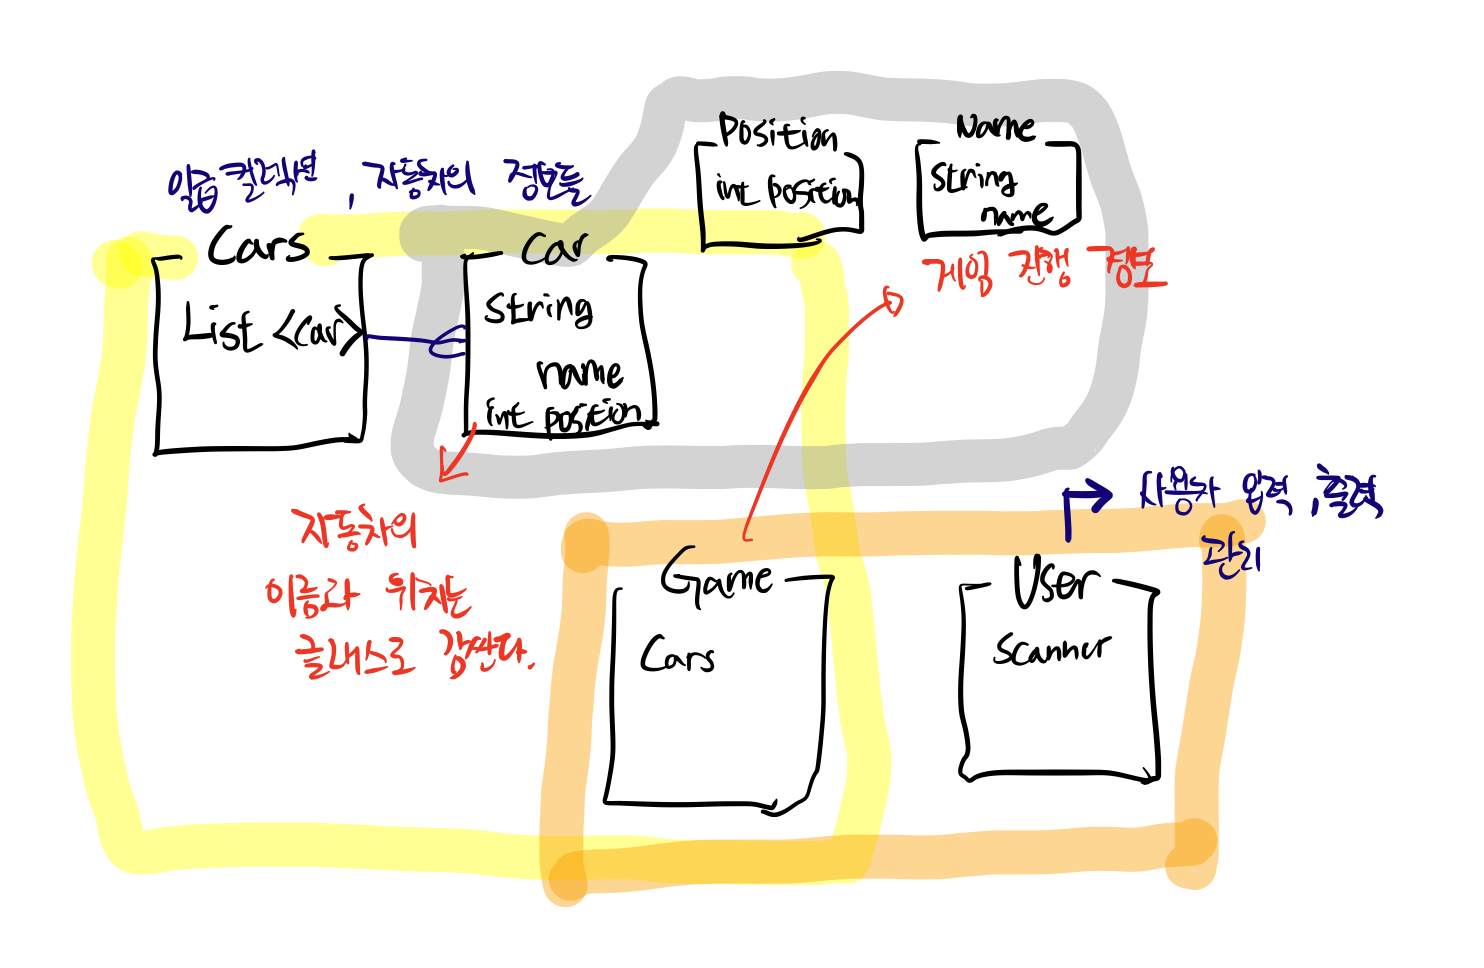 일급컬렉션, 자동차의 정보들
Cars
List <Car>
Car
String
name
int position
Position
int position
Name
String
name
게임 진행 정보
자동차의
이름과 위치는
클래스로 감싼다.
Game
Cars
사용자 입력, 출력
관리
User
Scanner